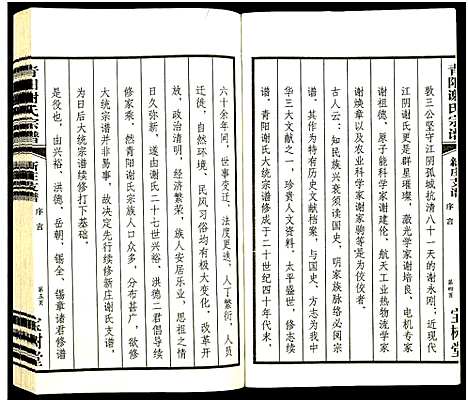 青阳谢氏宗谱
新庄支谱
序言
第四页
宝树堂
敦三公坚守江阴孤城抗清八十一天的谢永刚；近现代
江阴谢氏更是群星璀璨，激光学家谢培良、电机专家
谢祖德、原子能科学家谢建伦、航天工业热物流学家
谢焕章以及农业科学家谢家驹等是为佼佼者。
古人云：知民族兴衰须读国史，明家族脉络必阅宗
谱，其作为特有历史文献档案，与国史、方志为我中
华三大文献之一，珍贵人文资料。太平盛世，修志续
谱。青阳谢氏大统宗谱续修成于二十世纪四十年代末，
六十余年间，世事变迁，法度更新，人丁繁衍，人员
迁徙，自然环境、民风习俗均有极大改变。改革开
放，政治清明，经济繁荣，族人安居乐业，思祖之情
日久弥新，遂由谢氏二十七世兴裕、洪德二君倡导续
修家乘，然青阳谢氏宗族人口众多，分布甚广，欲修
大统宗谱并非易事，故决定先行续修新庄谢氏支谱，
为日后大统宗谱续修打下基础。
是役也，由兴裕、洪德、岳朝、锡全、锡章诸君修谱，
青阳谢氏宗谱
新庄支谱
序言
第五页
宝树堂